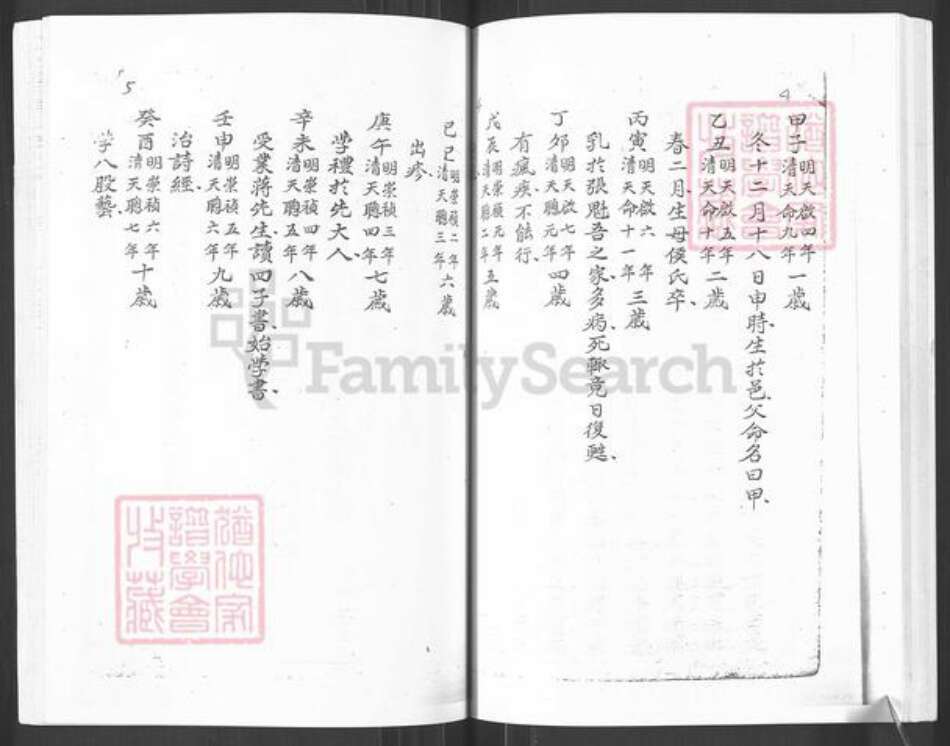 4
甲子明天啟四年清天命九年一歲
冬十二月十八日申時生於邑父命名曰甲、
乙丑明天啟五年清天命十年二歲
春二月、生母侯氏卒、
丙寅明天啟六年清天命十一年三歲
乳於張魁吾之家、多病、死輒竟日復甦、
丁卯明天啟七年清天聰元年四歲
有瘋疾不能行、
戊辰明崇禎元年清天聰二年五歲
己巳明崇禎二年清天聰三年六歲
出疹、
庚午明崇禎三年清天聰四年七歲
學禮於先大人、
辛未明崇禎四年清天聰五年八歲
受業將先生、讀四子書、始學書、
壬申明崇禎五年清天聰六年九歲
治詩經、
癸酉明崇禎六年清天聰七年十歲
學八股藝、
5
猶他家譜學會收藏
FamilySearch